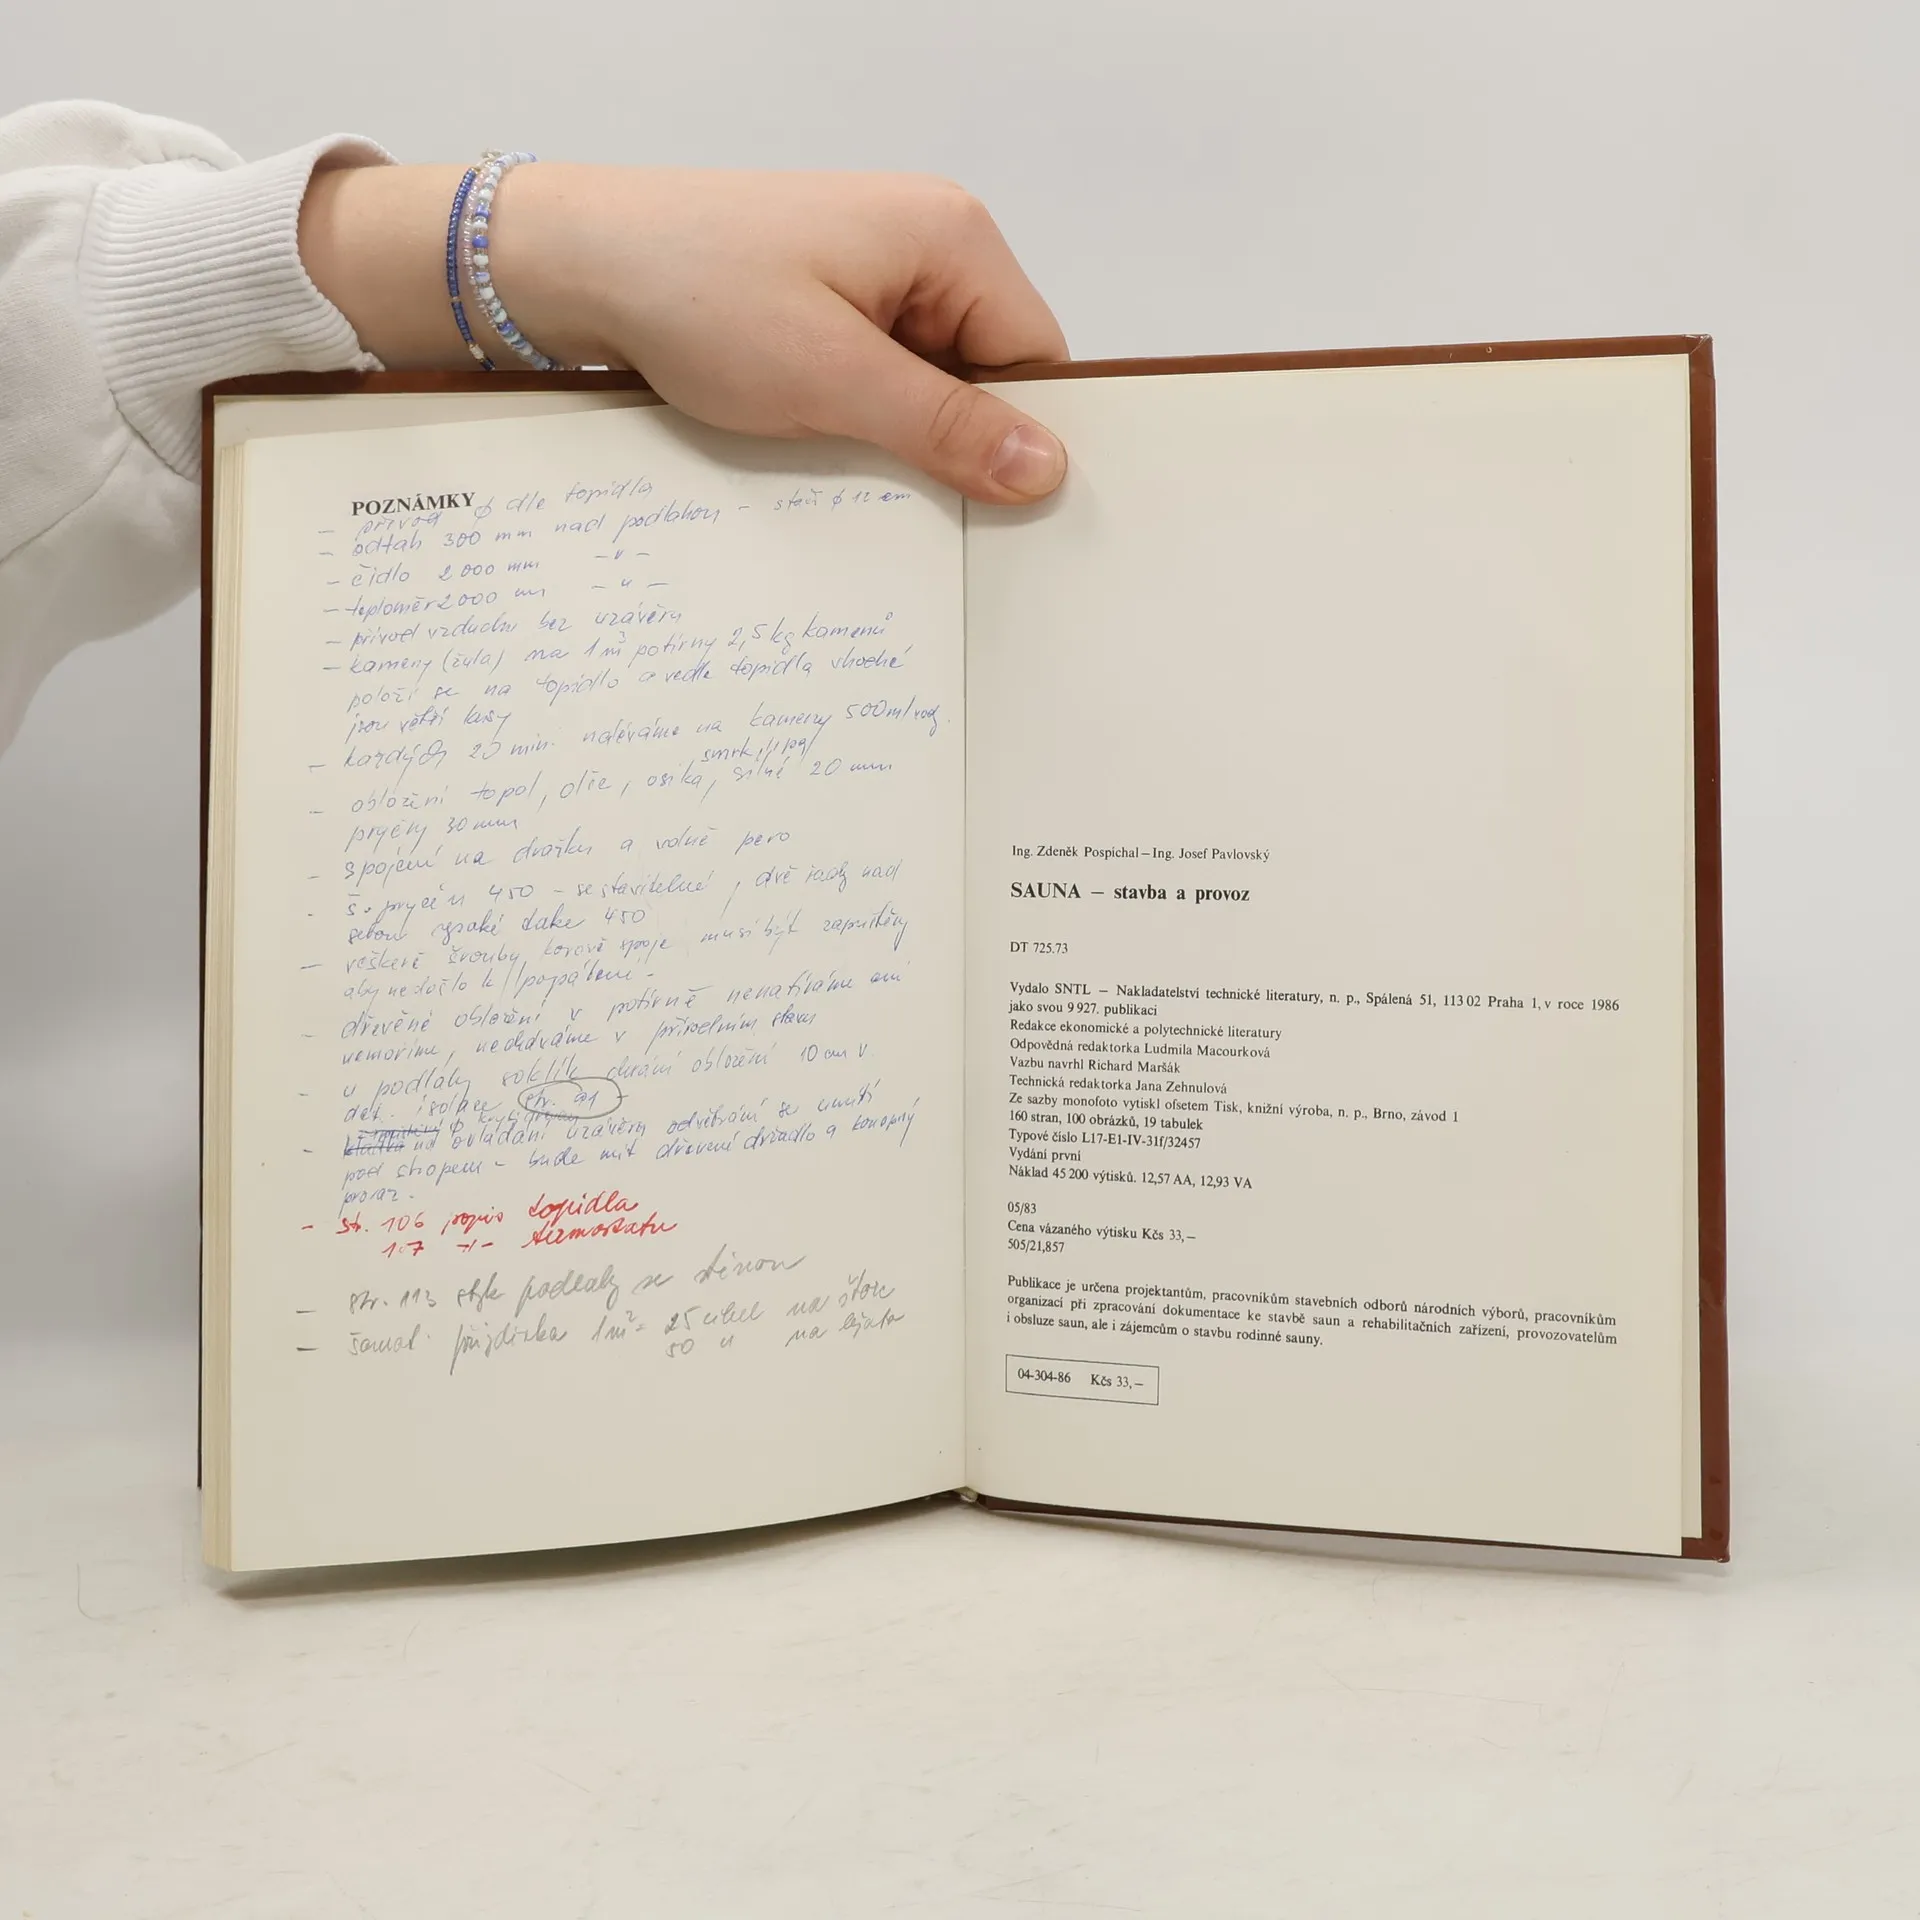 POZNÁMKY
– přívod ϕ dle topidla
– odtah 300 mm nad podlahou – stačí ϕ 12 cm
– čidlo 2000 mm –"–
– teploměr 2000 mm –"–
– přívod vzduchu bez uzávěru
– kameny (žula) na 1 m³ potírny 2,5 kg kamenů
položí se na topidlo a vedle topidla vhodné
jsou větší kusy
– každých 20 min. naléváme na kameny 500 ml vody.
smrk, lípa
– obložení topol, olše, osika, silné 20 mm
pryčny 30 mm
– spojení na drážku a volné pero
– š. pryčen 450 – sestavitelné, dvě řady nad
sebou vysoké také 450
– veškeré šrouby, kovové spoje musí být zapuštěny
aby nedošlo k popálení –
– dřevěné obložení v potírně nenatíráme ani
nemoříme, necháváme v přírodním stavu
– u podlahy soklík chrání obložení 10 cm v.
det. isolace str. 91
– ovládání uzávěru odvětrání se umístí
pod stropem – bude mít dřevěné držadlo a konopný
provaz.
– str. 106 popis topidla
107 –"– termostatu
– str. 113 styk podlahy se stěnou
– šamot. přizdívka 1 m² = 25 cihel na štorc
50 " na ležato
Ing. Zdeněk Pospíchal – Ing. Josef Pavlovský
SAUNA – stavba a provoz
DT 725.73
Vydalo SNTL – Nakladatelství technické literatury, n. p., Spálená 51, 113 02 Praha 1, v roce 1986
jako svou 9 927. publikaci
Redakce ekonomické a polytechnické literatury
Odpovědná redaktorka Ludmila Macourková
Vazbu navrhl Richard Maršák
Technická redaktorka Jana Zehnulová
Ze sazby monofoto vytiskl ofsetem Tisk, knižní výroba, n. p., Brno, závod 1
160 stran, 100 obrázků, 19 tabulek
Typové číslo L17-E1-IV-31f/32457
Vydání první
Náklad 45 200 výtisků. 12,57 AA, 12,93 VA
05/83
Cena vázaného výtisku Kčs 33,–
505/21,857
Publikace je určena projektantům, pracovníkům stavebních odborů národních výborů, pracovníkům
organizací při zpracování dokumentace ke stavbě saun a rehabilitačních zařízení, provozovatelům
i obsluze saun, ale i zájemcům o stavbu rodinné sauny.
04-304-86 Kčs 33,–